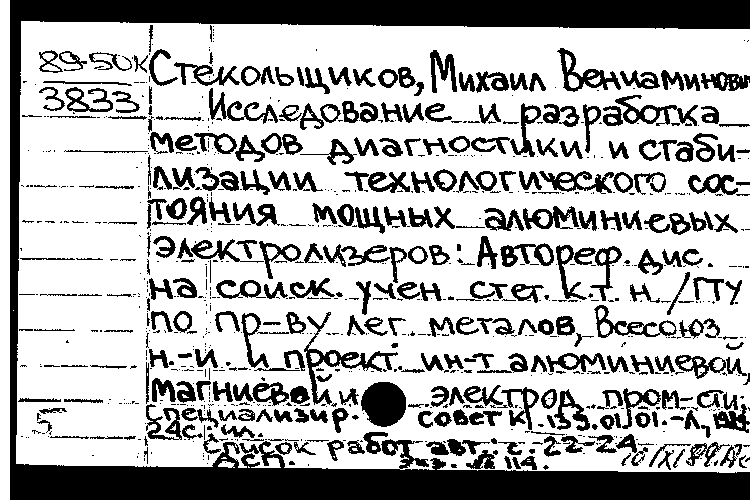 89-50К
3833
Стекольщиков, Михаил Вениаминович
Исследование и разработка
методов диагностики и стаби-
лизации технологического сос-
тояния мощных алюминиевых
электролизеров: Автореф. дис.
на соиск. учен. степ. к.т. н. / ГТУ
по пр-ву лег. металов, Всесоюз.
н.-и. и проект. ин-т алюминиевой,
магниевой и электрод. пром-сти;
Специализир. совет К. 139.01.01.-Л., 1989
5
24с. ил.
Список работ авт.: с. 22-24
ДСП. Экз. № 114.
10/X/89.